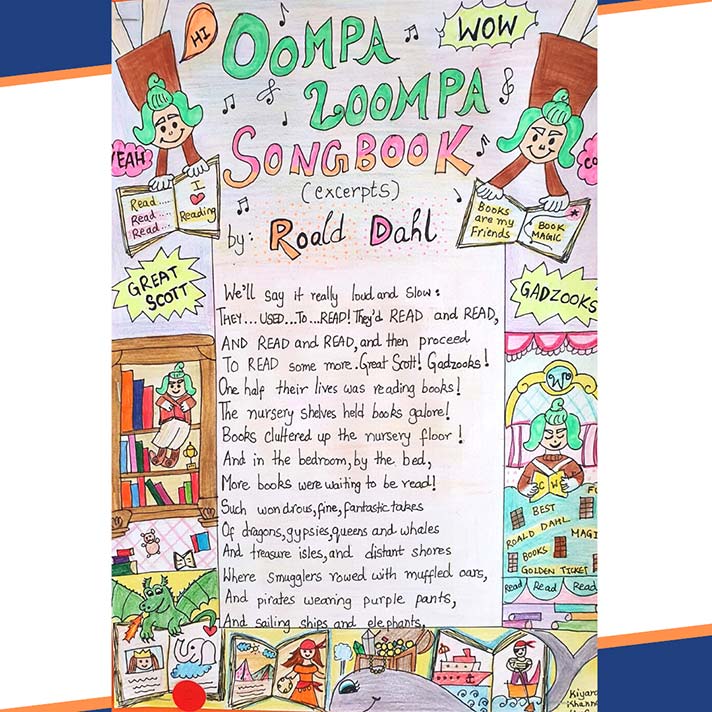 HI
OOMPA
WOW
LOOMPA
SONGBOOK
(excerpts)
by: Roald Dahl
YEAH
Read....
Read...
Read...
I
♥
Reading
Books
are my
Friends
BOOK
MAGIC
GREAT
SCOTT
GADZOOKS
We'll say it really loud and slow:
THEY...USED...TO...READ! They'd READ and READ,
AND READ and READ, and then proceed
TO READ some more. Great Scott! Gadzooks!
One half their lives was reading books!
The nursery shelves held books galore!
Books cluttered up the nursery floor!
And in the bedroom, by the bed,
More books were waiting to be read!
Such wondrous, fine, fantastic takes
Of dragons, gypsies, queens and whales
And treasure isles, and distant shores
Where smugglers rowed with muffled oars,
And pirates wearing purple pants,
And sailing ships and elephants,
W
C W
BEST
ROALD DAHL
BOOKS
GOLDEN TICKET
Read Read Read
Kiyara
Khanna